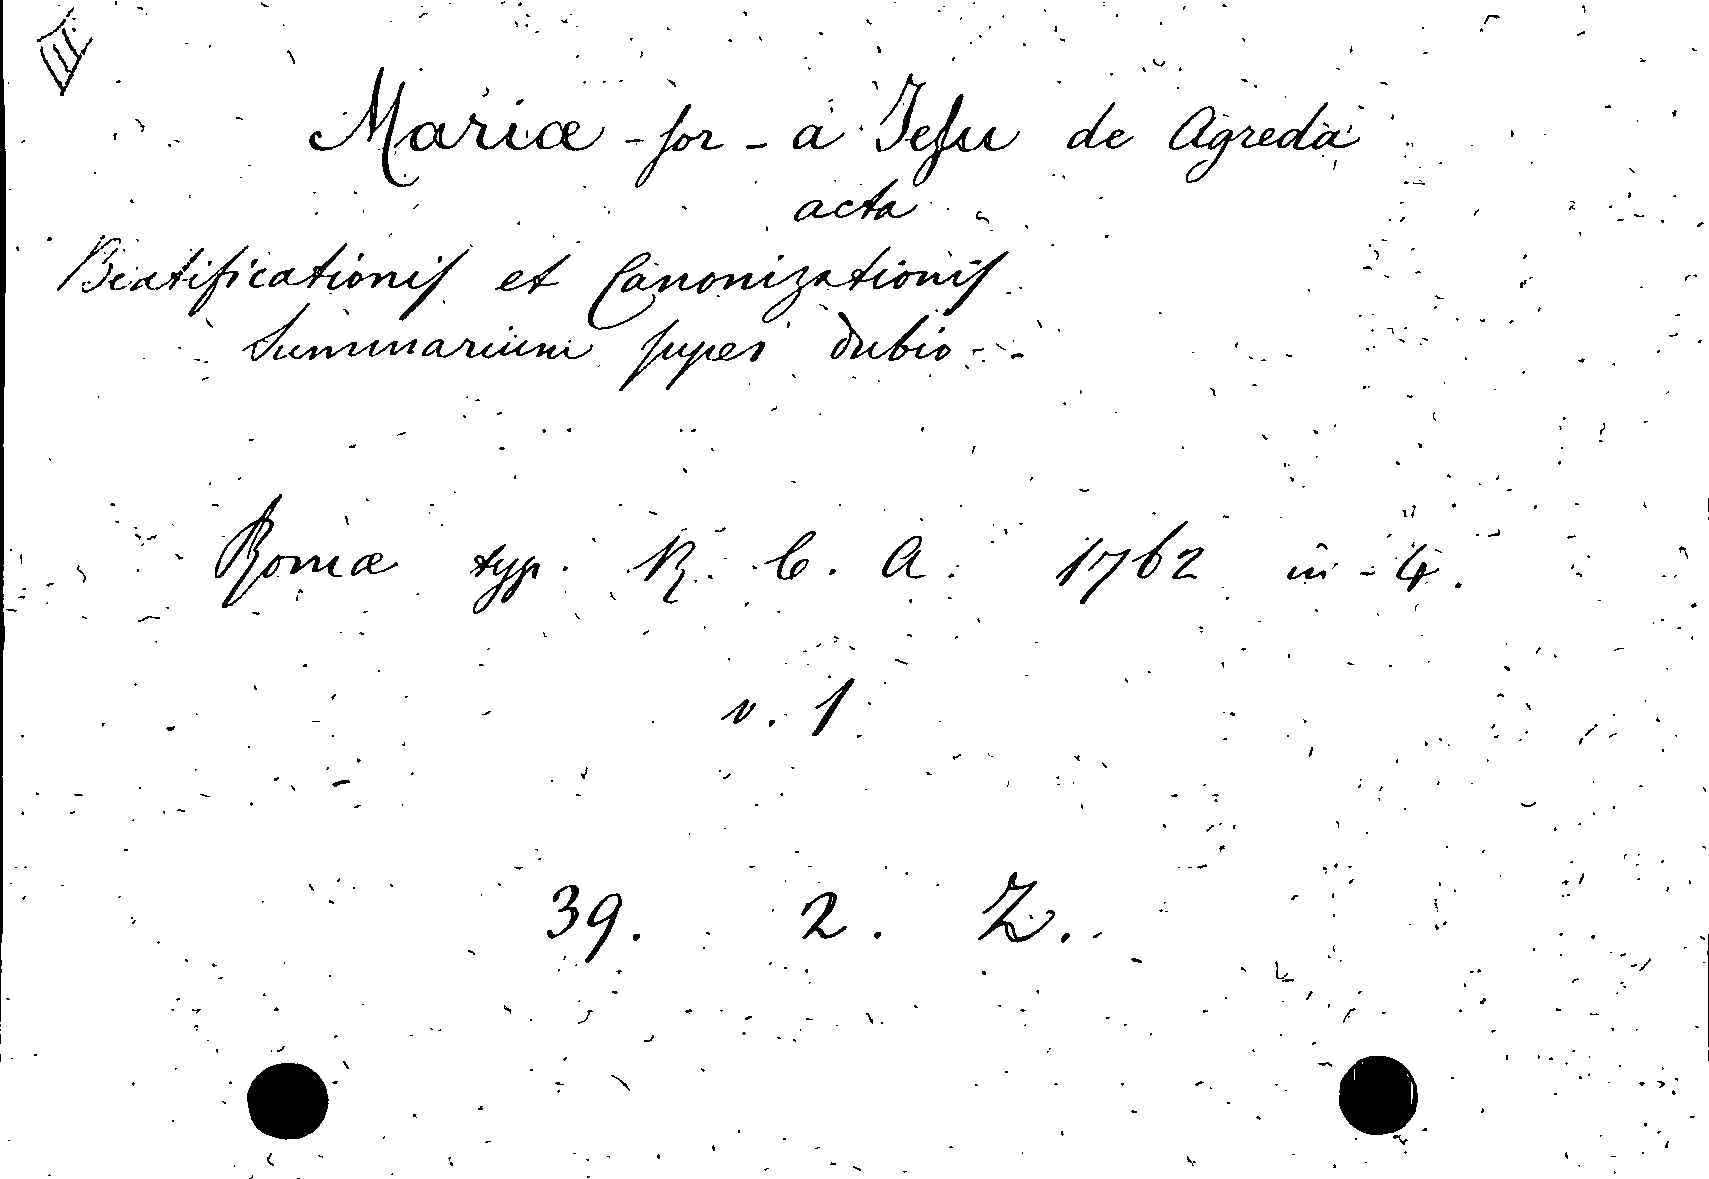 III
Mariæ - sor - a Jesu de Agreda
acta
Beatificationis et Canonizationis
Summarium super dubio - -
Romæ typ. R. C. A. 1762 in - 4.
v. 1
39. 2. Z.